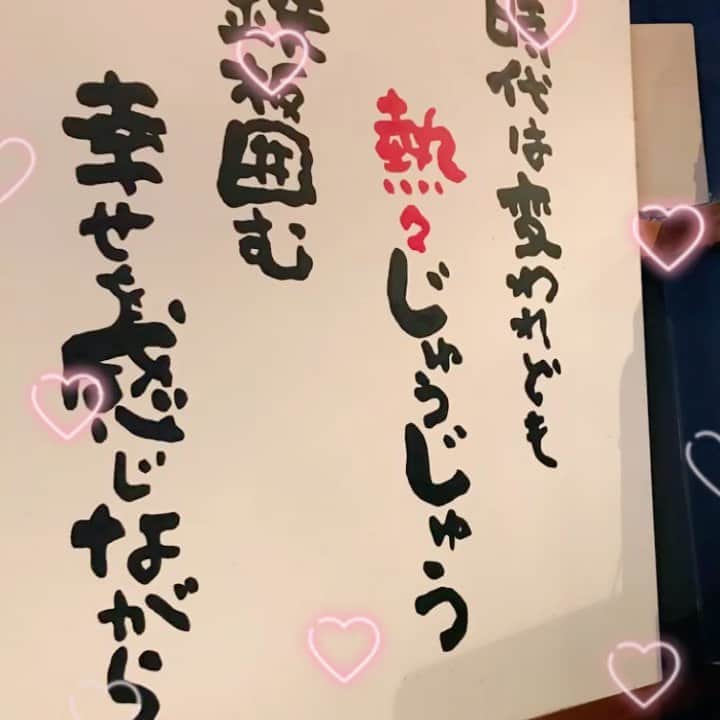 時代は変われども
熱々じゅうじゅう
鉄板囲む
幸せを感じながら